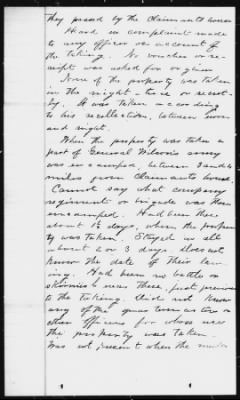 they passed by the Claimants house
Heard no complaint made
to any officer on account of
the taking. No voucher or re-
ceipt was asked for or given
None of the property was taken
in the night-time or secret-
ly. It was taken according
to his recollection, between noon
and night.
When the property was taken a
part of General Wilson's army
was encamped, between 3 and 4
miles from Claimants house.
Cannot say what company
regiment or brigade was there
encamped. Had been there
about 1½ days, when the proper-
ty was taken. Stayed in all
about 2 or 3 days does not
know the date of their leav-
ing. Had been no battle or
skirmish near there, just previous
to the taking. Did not know
any of the quartermasters or
other officers for whose use
the property was taken
Was not present when the mules